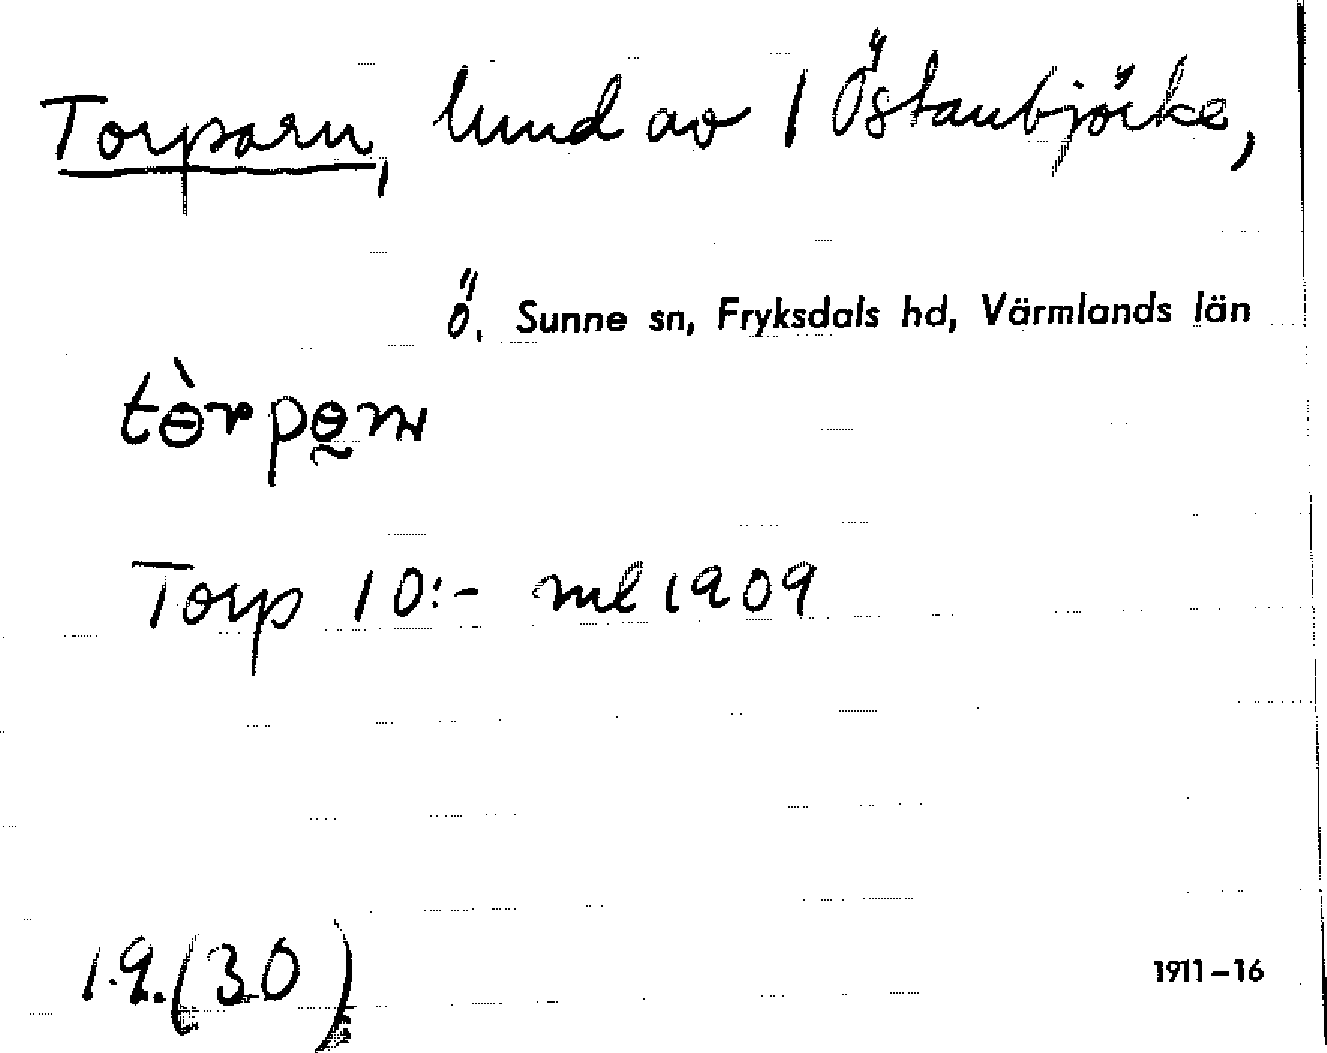 Torparn, lund av 1 Östanbjörke,
Ö. Sunne sn, Fryksdals hd, Värmlands län
tɵ̀rpɵ̰rn
Torp 10:- ml 1909
1.9.(30)
1911–16